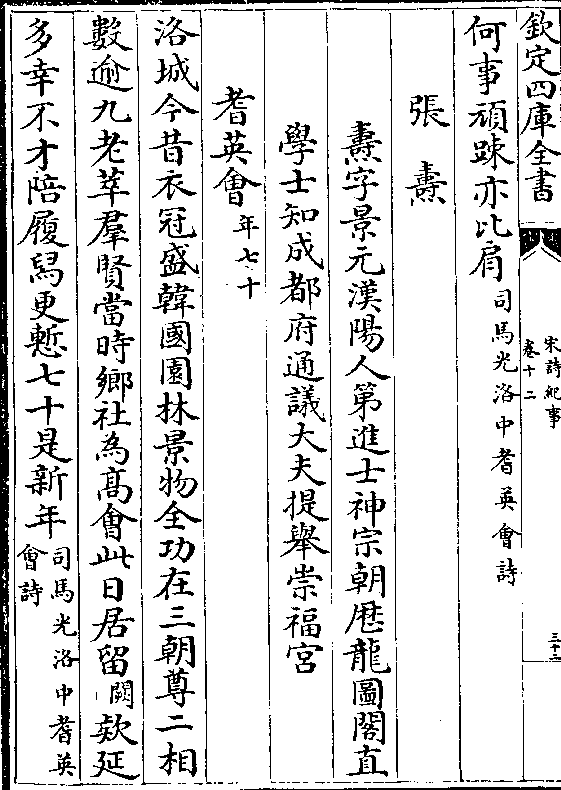 欽定四庫全書
宋詩紀事
卷十二
三十二
何事頑踈亦比肩司馬光洛中耆英會詩
張燾
燾字景元漢陽人第進士神宗朝歴龍圖閣直
學士知成都府通議大夫提舉崇福宮
耆英會年七十
洛城今昔衣冠盛韓國園林景物全功在三朝尊二相
數逾九老萃羣賢當時鄉社為髙會此日居留闕欵延
多幸不才陪履舃更慙七十是新年司馬光洛中耆英會詩